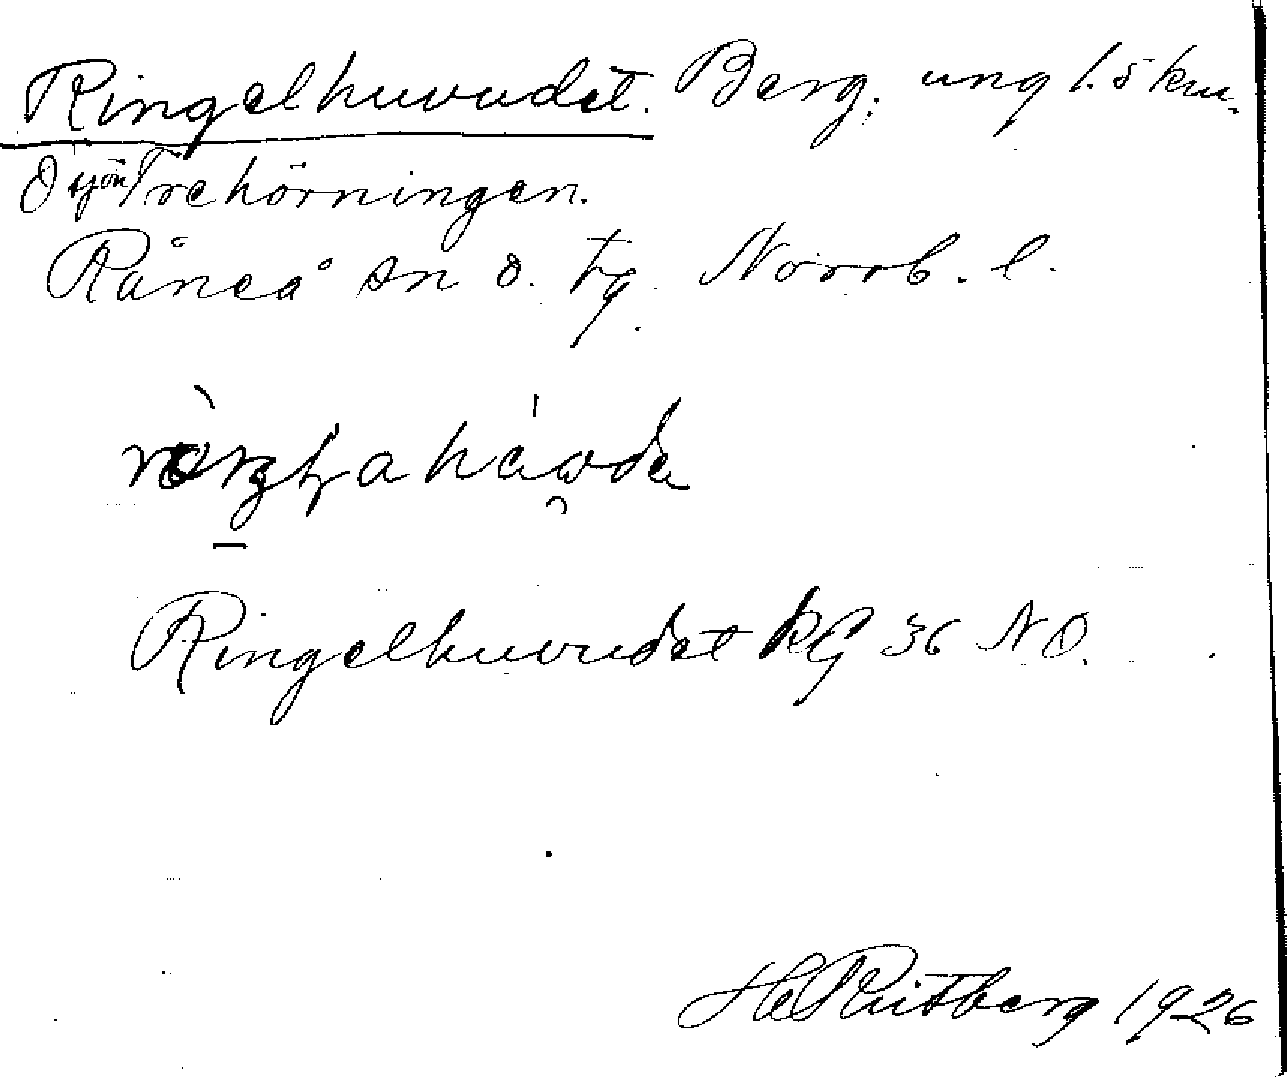 Ringelhuvudet. Berg, ung 1.5 km.
O sjön Trehörningen.
Råneå sn o. tg. Norrb. l.
Ringelhuvudet RG 36 NO.
H Rutberg 1926